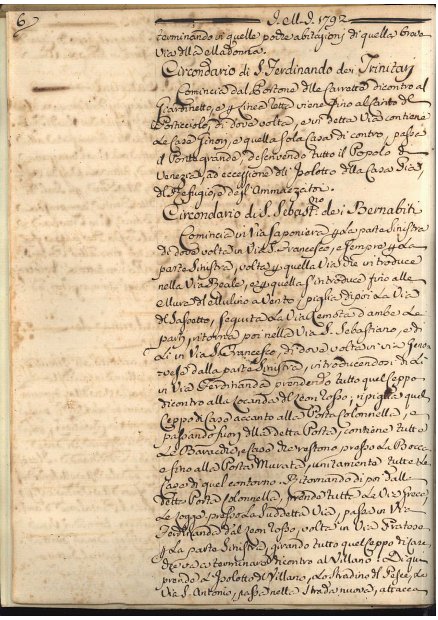 6
J. M. J. 1792
terminando in quelle poche abitazioni di quella breve
via della Madonna.
Circondario di S. Ferdinando dei Trinitarj
Comincia dal Portone delle Carrette dicontro al
Giardinetto, e p linea retta viene fino al Santo del
Ponticiolo, di dove volta, e in detta Via contiene
le Case Finon, e quella sola Casa di contro, passa
il Ponte grande, descrivendo tutto il Popolo di
Venezia ad eccessione dell' Isolotto della Casa Pia,
del Refugio, e degl' Ammazzatoi.
Circondario di S. Sebast.no dei Bernabiti
Comincia in Via Saponiera p la parte Sinistra
di dove volta in Via S. Francesco, e sempre p la
parte Sinistra, volta p quella Via che introduce
nella Via Reale, e p quella s'introduce fino alle
Mura del Mulino a Vento, piglia dipoi la Via
del Sassetto, seguita la Via Remota d'ambe le
parti, ritorna poi nella Via S. Sebastiano, e di
lì in Via S. Francesco, di dove volta in via Geno=
vese dalla parte Sinistra, introducendosi di lì
in Via Ferdinanda prendendo tutto quel Ceppo
dicontro alla Locanda del Leon Rosso, ripiglia quel
Ceppo di Case accanto alla Porta Colonnella, e
passando fuori della detta Porta, contiene tutte
le Baracche, e Case che restono presso la Bocca
e fino alla Porta Murata, unitamente tutte le
Case di quel contorno. Ritornando di poi dalla
detta Porta Colonnella, prende tutta la Via Greca
le Logge presso la suddetta Via, passa in Via
Ferdinanda dal Leon Rosso, volta in Via Pratosa
p la parte Sinistra, girando tutto quel Ceppo di Case,
che va a terminare dicontro al Villano: Di qui
prende l'Isolotto del Villano, lo Stradino del Pesce, la
Via S. Antonio, passa nella Strada nuova, attacca